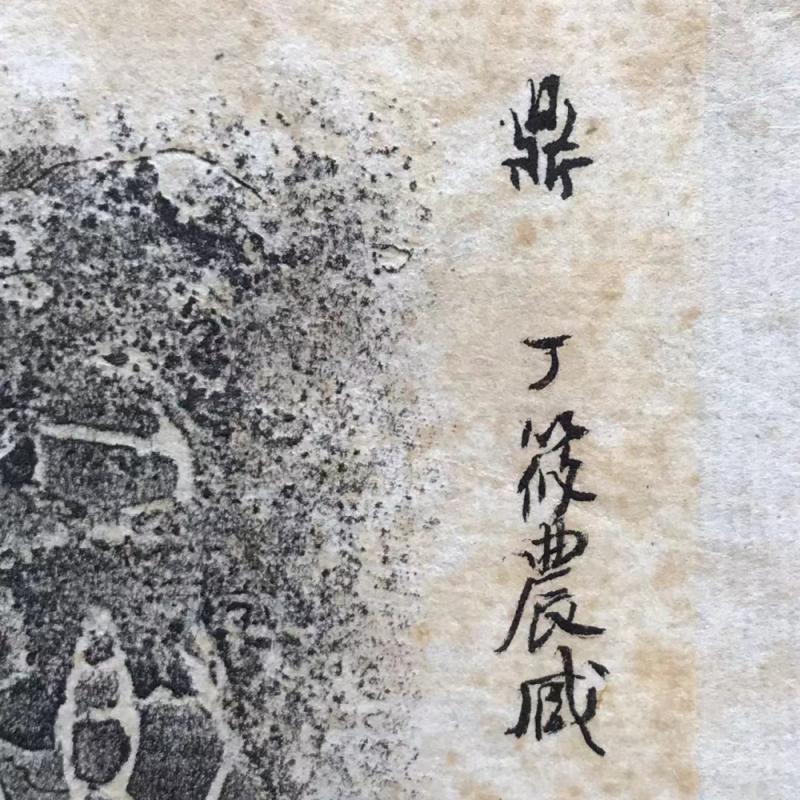 鼎 丁筱農臧